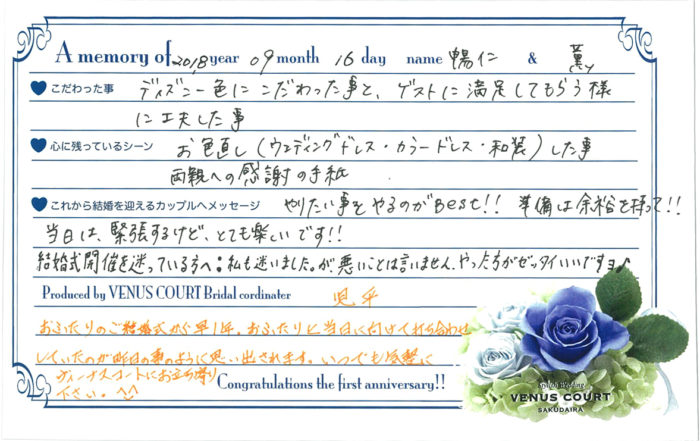 A memory of 2018 year 09 month 16 day name 暢仁 & 薫
こだわった事 ディズニー色にこだわった事と、ゲストに満足してもらう様
に工夫した事
心に残っているシーン お色直し(ウェディングドレス・カラードレス・和装)した事
両親への感謝の手紙
これから結婚を迎えるカップルへメッセージ やりたい事をやるのがBest!! 準備は余裕を持って!!
当日は、緊張するけど、とても楽しいです!!
結婚式開催を迷っている方へ:私も迷いました。が、悪いことは言いません、やった方がゼッタイいいですヨ♪
Produced by VENUS COURT Bridal cordinater 児平
おふたりのご結婚式から早1年。おふたりと当日に向けて打ち合わせ
していたのが昨日の事のように思い出されます。いつでも気軽に
ヴィーナスコートにお立ち寄り
下さい。^^
Congratulations the first anniversary!!
Stylish Wedding
VENUS COURT
SAKUDAIRA